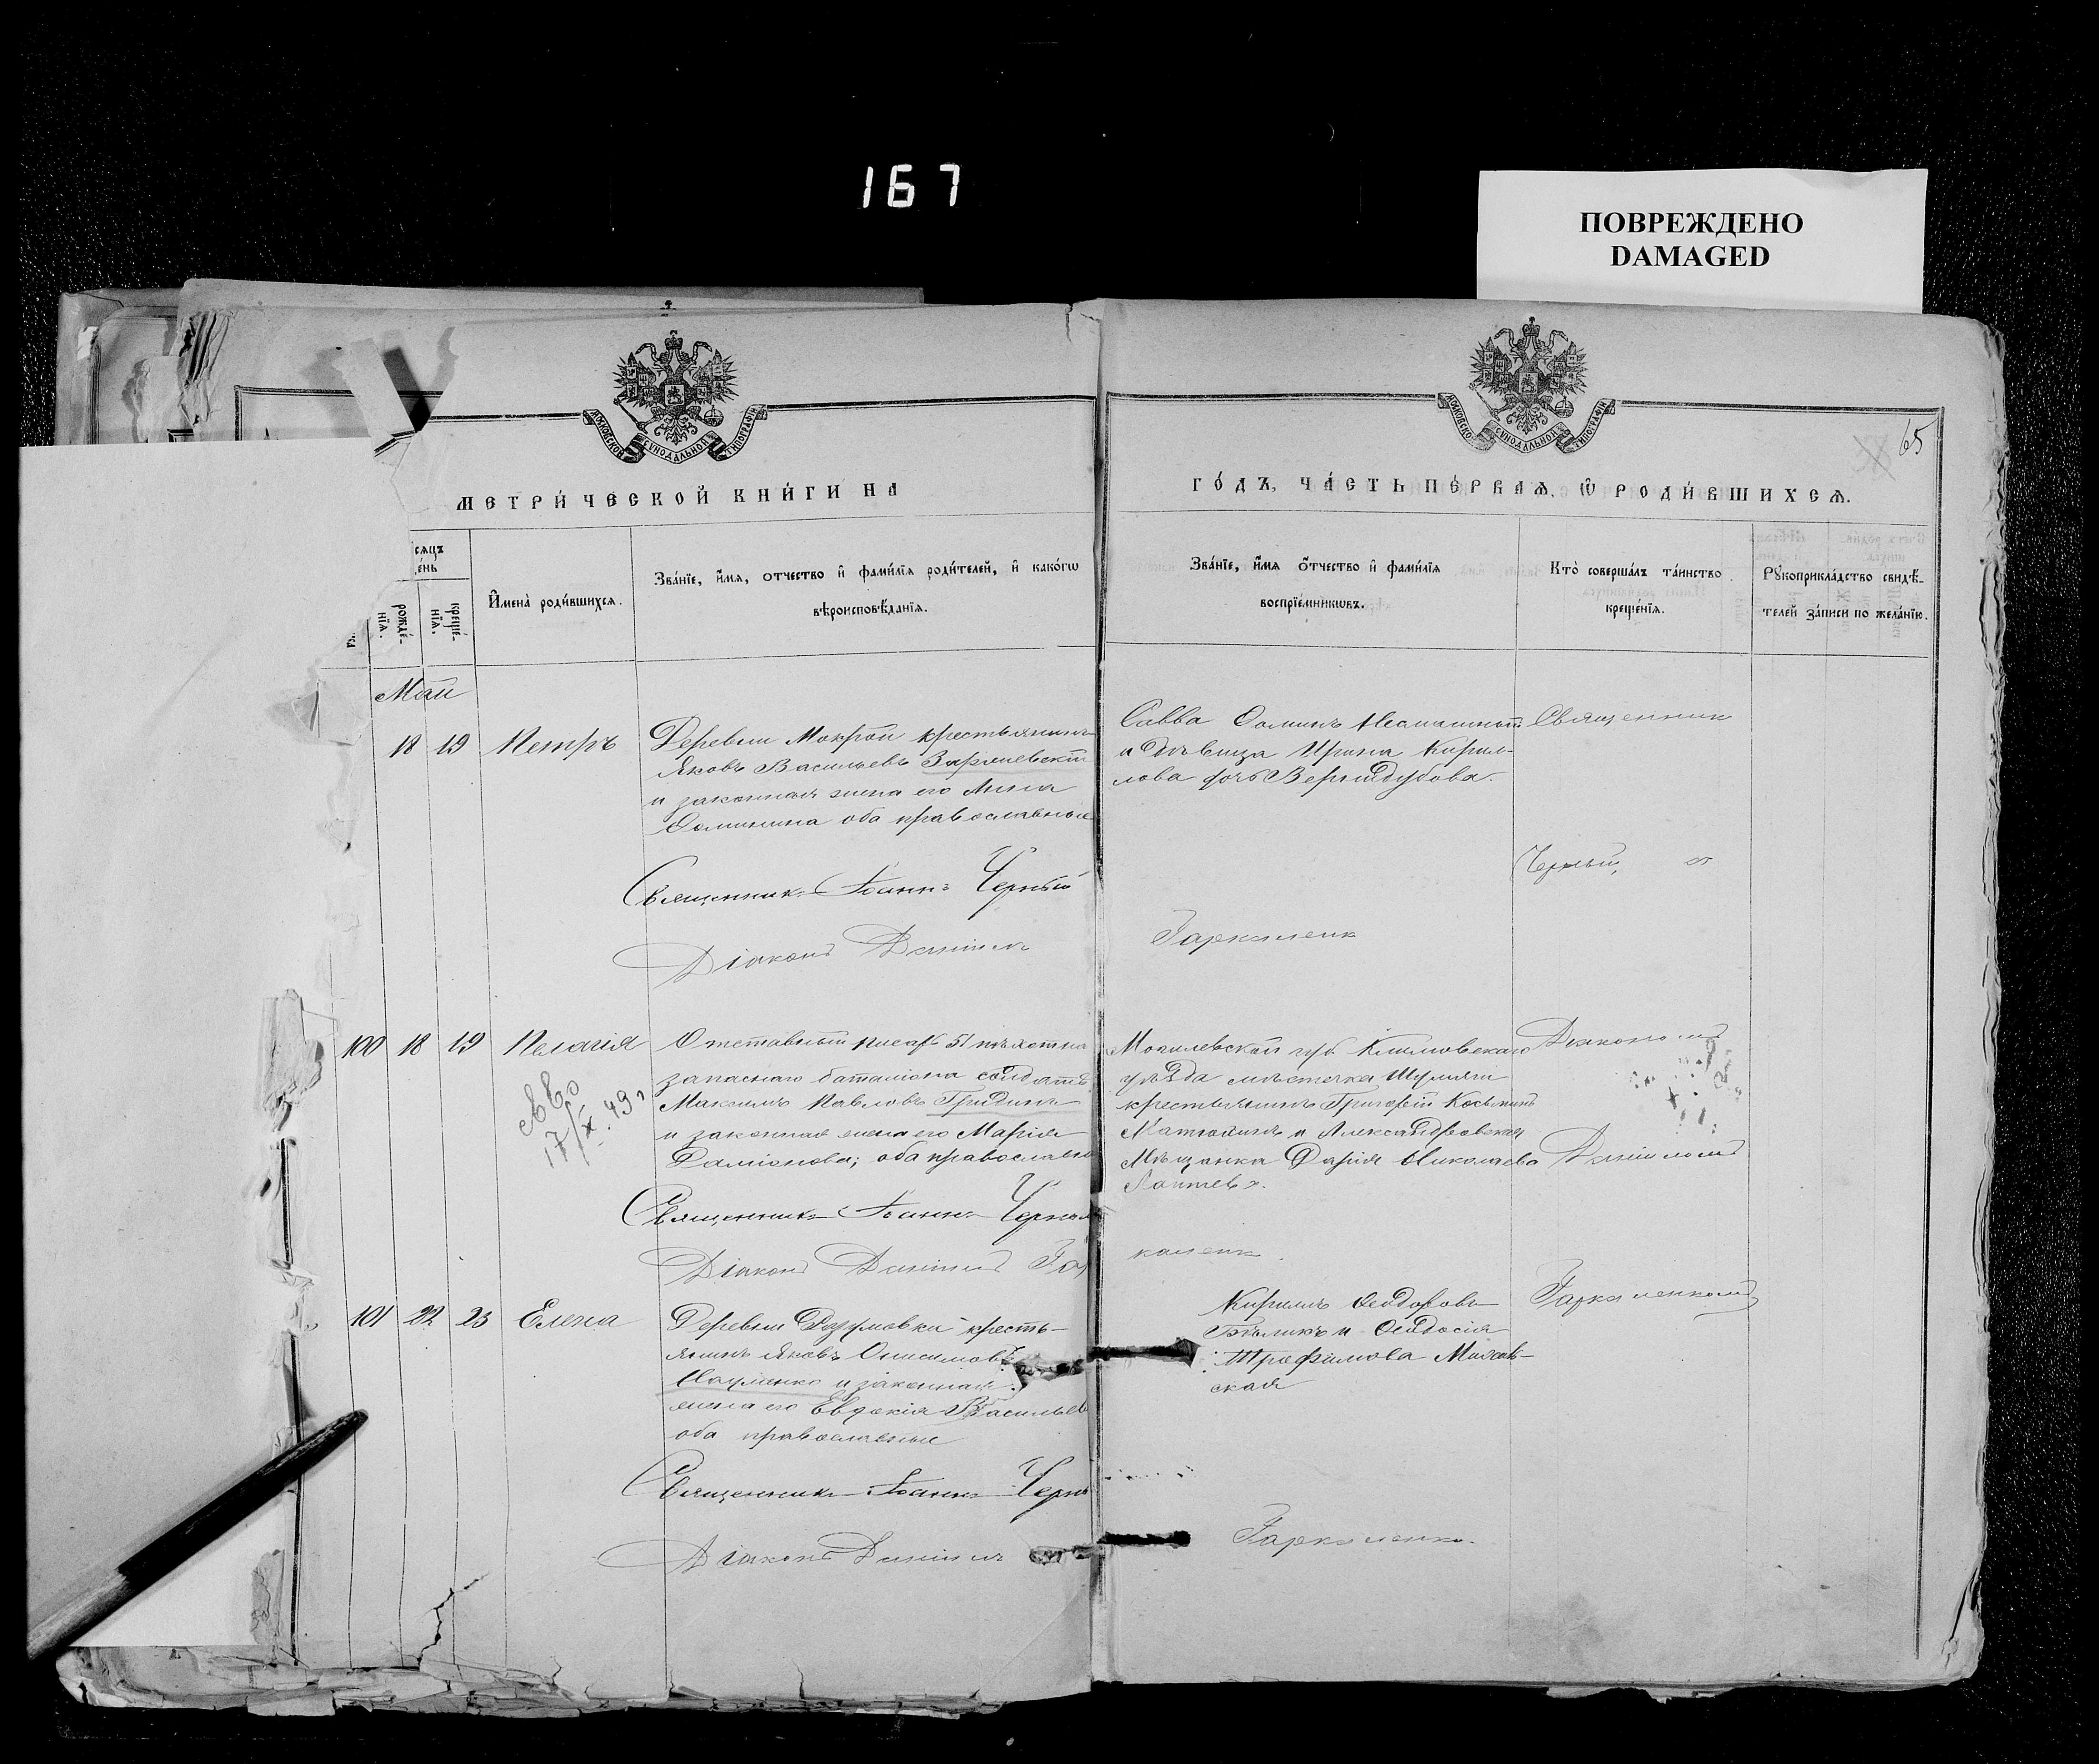 167
ПОВРЕЖДЕНО
DAMAGED
МОСКОВСКОЙ СУНОДАЛЬНОЙ ТИПОГРАФІИ
МОСКОВСКОЙ СУНОДАЛЬНОЙ ТИПОГРАФІИ
65
МЕТРИ́ЧЕСКОЙ КНИ́ГИ НА
ГО́ДЪ, ЧА́СТЬ ПЕ́РВАѦ, Ѡ РОДИ́ВШИХСѦ.
сѧцъ
е́нь
рожде́-
нїѧ.
креще́-
нїѧ.
И҆мена̀ роди́вшихсѧ.
Зва́нїе, и҆́мѧ, ѻтчество и҆ фами́лїѧ роди́телей, и҆ како́гѡ
вѣроисповѣ́данїѧ.
Зва́нїе, и҆́мѧ ѻ҆́тчество и҆ фами́лїѧ
воспрїе́мникѡвъ.
Кто̀ соверша́лъ та́инство
креще́нїѧ.
Рꙋкоприкла́дство свидѣ́-
телей за́писи по жела́нїю.
Май
18 19 Петръ
Деревни Мокрой крестьянинъ
Яковъ Васильевъ
и законная жена его Анна
Фоминина оба православные
Савва Фоминъ
и дѣвица Ирина Кирил-
лова дочь Вернидубова.
Священник
Черный,
Священникъ Іоаннъ Черный
Діаконъ Даніилъ
100 18 19 Пелагія
Отставный писарь 51 пѣхотна
запаснаго баталіона солдатъ
Максимъ Павловъ Гридинъ
и законная жена его Марія
оба православн
Могилевской губ. Климовскаго
уѣзда мѣстечка Шумячи
крестьянинъ Григорій Косьминъ
и Александровская
Мѣщанка Дарія Николаева
Лаптева.
Діакономъ
Даніиломъ
св-во
17/X 49 г
Священникъ Іоаннъ Черный
Діаконъ Даніилъ Га
101 22 23 Елена
Деревни Разумовки кресть-
янинъ Яковъ Онисимовъ
Науменко и законная
жена его Евдокія Василье
оба православные
Кириллъ Феодоровъ
Бѣликъ и Феодосія
Трофимова
ская
Священникъ Іоаннъ Черн
Діаконъ Даніилъ